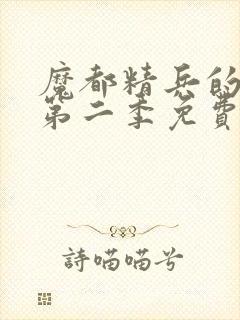 魔都精兵的
第二季免費
詩喵喵兮